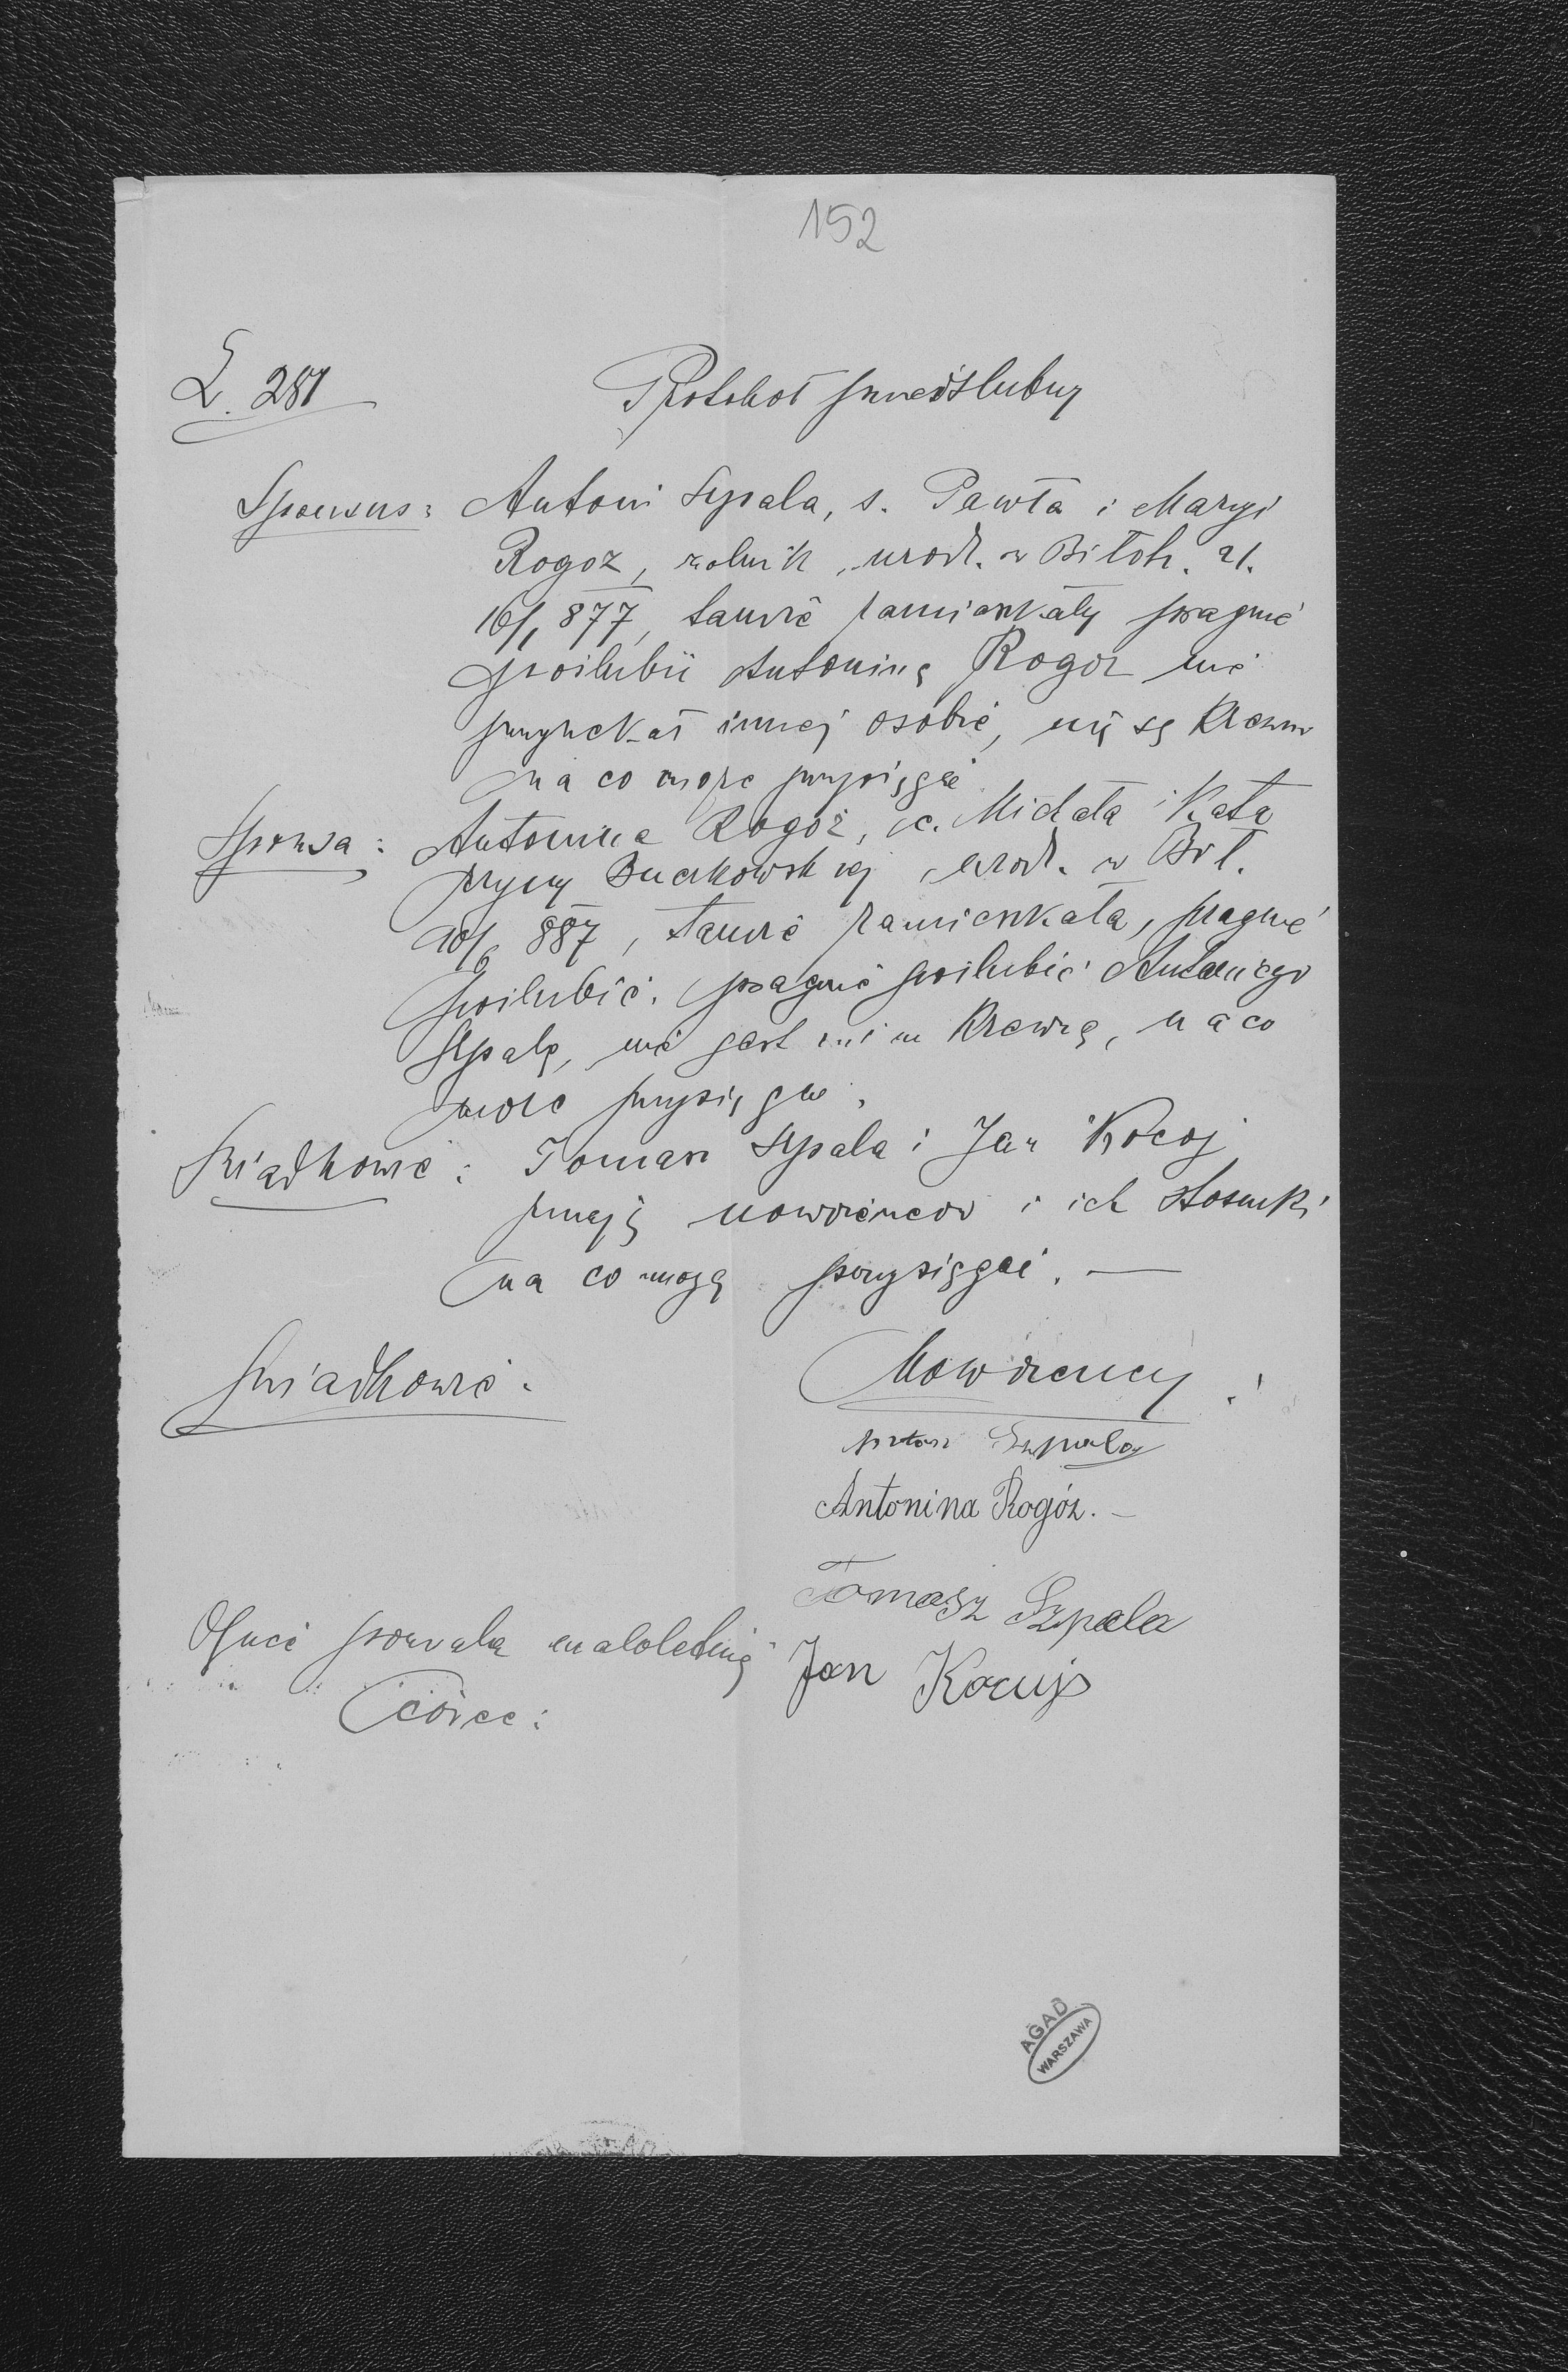 152
L. 281
Protokoł przedślubny
Sponsus: Antoni Szpala, s. Pawła i Maryi
Rogoż, rolnik, urodz. w Biłoh. 21.
16/1 877, tamże zamieszkały pragnie
poślubić Antoninę Rogoż nie
przyrzekał innej osobie, nie są krewni
na co może przysięgać
Sponsa: Antonina Rogoż, c. Michała i Kata
rzyny Buczkowskiej, urodz. w Bił.
10/6 887, tamże zamieszkała, pragnie
poślubić. pragnie poślubić Antoniego
Szpalę, nie jest z nim krewną, na co
może przysięgać.
Świadkowie: Tomasz Szpala i Jan Kocoj
znają nowożeńców i ich stosunki
na co mogą przysięgać. —
Świadkowie.
Nowożeńcy:
Szpala
Antonina Rogóz. —
Tomasz Szpala
Jan Kocuj
Ojciec pozwala małoletniej
córce:
AGAD
WARSZAWA